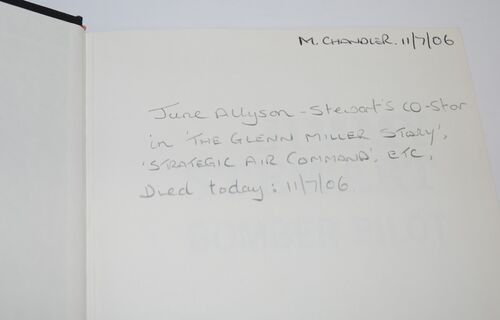 M. CHANDLER. 11/7/06
June Allyson - Stewart's co-star
in 'THE GLENN MILLER STORY',
'STRATEGIC AIR COMMAND', ETC,
Died today: 11/7/06
BOMBER PILOT